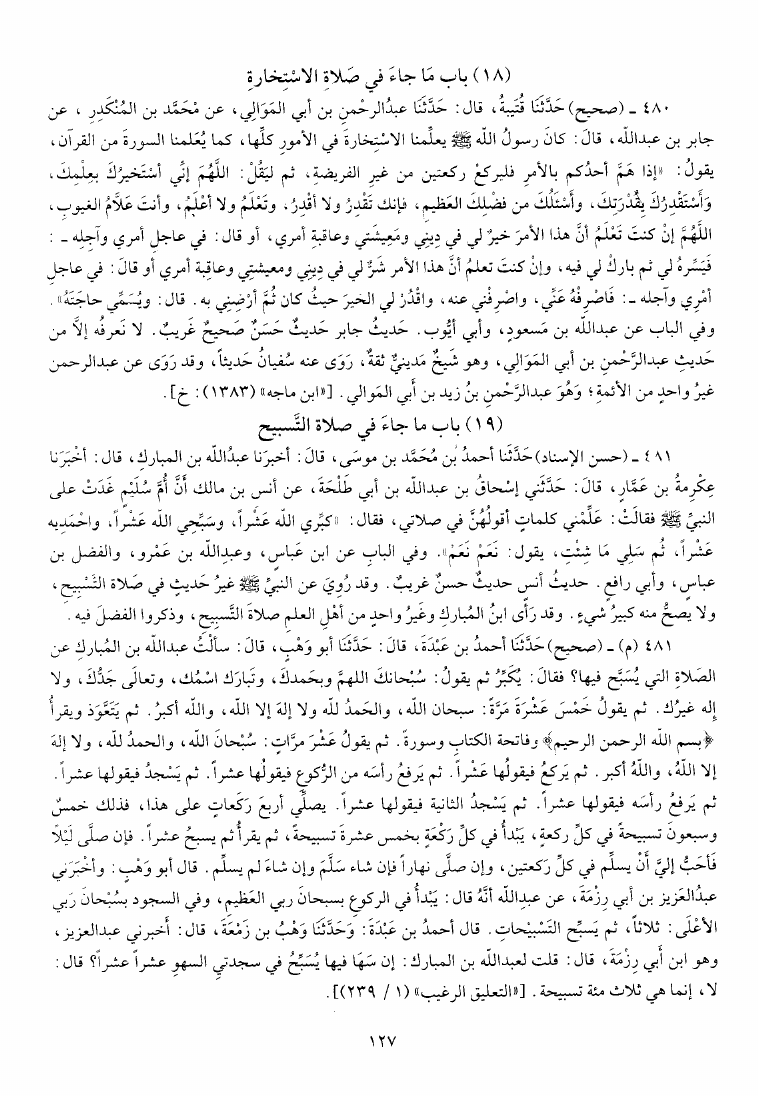 (١٨) باب مَا جاءَ في صَلاةِ الاسْتِخارةِ
٤٨٠ ـ (صحيح) حَدَّثَنَا قُتَيبةُ، قال: حَدَّثَنَا عبدُالرحْمنِ بن أبي المَوَالِي، عن مُحَمَّد بن المُنْكَدِرِ ، عن
جابر بن عبدالله، قالَ: كانَ رسولُ الله ﷺ يعلِّمنا الاسْتِخارةَ في الأمورِ كلِّها، كما يُعَلمنا السورةَ من القرآن،
يقولُ: «إذا هَمَّ أحدُكم بالأمرِ فليركعْ ركعتين من غيرِ الفريضةِ، ثم ليَقُلْ: اللَّهُمَ إنِّي أسْتَخيرُكَ بِعِلْمِكَ،
وَأسْتَقْدِرُكَ بِقُدْرَتِكَ، وأَسْئَلُكَ من فضْلِكَ العَظيمِ، فإنك تَقْدِرُ ولا أقْدِرُ، وتَعْلَمُ ولا أعْلَمُ، وأنتَ عَلاَّمُ الغيوبِ،
اللَّهُمَّ إنْ كنتَ تَعْلَمُ أنَّ هذا الأمرَ خيرٌ لي في دِيني ومَعِيشَتي وعاقبةِ أمري، أو قال: في عاجلِ أمري وآجِلِه ـ :
فَيَسِّرهُ لي ثم بارِكْ لي فيه، وإنْ كنتَ تعلمُ أنَّ هذا الأمر شَرٌّ لي في دِيني ومعيشتي وعاقِبة أمري أو قالَ: في عاجلِ
أمْري وآجله ـ: فَاصْرِفْهُ عَنِّي، واصْرِفْني عنه، واقْدُرْ لي الخيرَ حيثُ كان ثُمَّ أرْضِني به. قال: ويُسَمِّي حاجَتَهُ».
وفي الباب عن عبدالله بن مَسعودٍ، وأبي أيُّوب. حَديثُ جابر حَديثٌ حَسَنٌ صَحيحٌ غَريبٌ. لا نَعرفُه إلاَّ من
حَديثِ عبدالرَّحْمنِ بن أبي المَوَالِي، وهو شَيخٌ مَدينيٌّ ثقةٌ، رَوَى عنه سُفيانُ حَديثاً، وقد رَوَى عن عبدالرحمن
غيرُ واحدٍ من الأئمةِ؛ وَهُوَ عبدالرَّحْمنِ بنُ زيد بن أَبي المَوالي. [«ابن ماجه» (١٣٨٣): خ].
(١٩) باب ما جاءَ في صلاة التَّسبيح
٤٨١ ـ (حسن الإسناد) حَدَّثَنا أحمدُ بْن مُحَمَّد بن موسَى، قالَ: أخبرَنا عبدُالله بن المباركِ، قال: أخْبَرَنا
عِكْرِمةُ بن عَمَّارٍ، قالَ: حَدَّثَني إسْحاقُ بن عبدالله بن أبي طَلْحَةَ، عن أنس بن مالك أنَّ أُمَّ سُلَيْمٍ غَدَتْ على
النبيِّ ﷺ فقالَتْ: عَلِّمْني كلماتٍ أقولُهُنَّ في صلاتي، فقال: «كبِّري الله عَشْراً، وسَبِّحِي الله عَشْراً، واحْمَديه
عَشْراً، ثُم سَلِي مَا شِئْتِ، يقول: نَعَمْ نَعَمْ». وفي البابِ عن ابن عَباسٍ، وعبدِالله بن عَمْرو، والفضل بن
عباسٍ، وأبي رافعٍ. حديثُ أنسٍ حديثٌ حسنٌ غريبٌ. وقد رُوِيَ عن النبيِّ ﷺ غيرُ حَديثٍ في صَلاة التَّسْبِيحِ،
ولا يصحُّ منه كبيرُ شيءٍ. وقد رَأَى ابنُ المُباركِ وغَيرُ واحدٍ من أهْلِ العلمِ صلاةَ التَّسبيحِ، وذكروا الفضلَ فيه.
٤٨١ (م) ـ (صحيح) حَدَّثَنَا أحمدُ بن عَبْدَةَ، قالَ: حَدَّثَنَا أبو وَهْبٍ، قالَ: سألْتُ عبدالله بن المُبارك عن
الصَلاةِ التي يُسَبَّح فيها؟ فقالَ: يُكَبِّرُ ثم يقولُ: سُبْحانكَ اللهمَّ وبحَمدكَ، وتَبَارَك اسْمُك، وتعالَى جَدُّكَ، ولا
إله غيرُك. ثم يقولُ خَمْسَ عَشْرَةَ مَرَّةً: سبحان الله، والحَمدُ للهِ ولا إلهَ إلا الله، والله أكبرُ. ثم يَتَعَّوَذ ويقرأُ
﴿بسم الله الرحمن الرحيم﴾ وفاتحة الكتابِ وسورةً. ثم يقولُ عَشْرَ مرَّاتٍ: سُبْحَانَ الله، والحمدُ لله، ولا إلهَ
إلا اللهُ، واللهُ أكبر. ثم يَركعُ فيقولُها عَشْراً. ثم يَرفعُ رأسَه من الرُّكوعِ فيقولُها عشراً. ثم يَسْجدُ فيقولها عشراً.
ثم يَرفعُ رأسَه فيقولها عشراً. ثم يَسْجدُ الثانية فيقولها عشراً. يصلِّي أربعَ رَكعَاتٍ على هذا، فذلك خمسٌ
وسبعونَ تسبيحةً في كلِّ ركعةٍ، يَبْدأُ في كلِّ رَكْعَةٍ بخمس عشرةَ تسبيحةً، ثم يقرأُ ثم يسبحُ عشراً. فإن صلَّى لَيْلًا
فَأحَبُّ إليَّ أنْ يسلِّم في كلِّ رَكعتين، وإن صلَّى نهاراً فإن شاء سَلَّمَ وإن شاءَ لم يسلِّم. قال أبو وَهْبٍ: وأخْبَرَني
عبدُالعَزيز بن أبي رِزْمَةَ، عن عبدِالله أنَّهُ قال: يَبْدأُ في الركوعِ بسبحانَ ربي العَظيمِ، وفي السجود بسُبْحانَ رَبي
الأعْلَى: ثلاثاً، ثم يَسبِّح التَسْبيْحاتِ. قال أحمدُ بن عَبْدَةَ: وَحَدَّثَنَا وَهْبُ بن زَمْعَةَ، قال: أَخبرني عبدالعزيز،
وهو ابن أَبي رِزْمَةَ، قال: قلت لعبدالله بن المبارك: إن سَهَا فيها يُسَبِّحُ في سجدتيِ السهوِ عشراً عشراً؟ قال:
لا، إنما هي ثلاث مئة تسبيحة. [«التعليق الرغيب» (١ / ٢٣٩)].
١٢٧